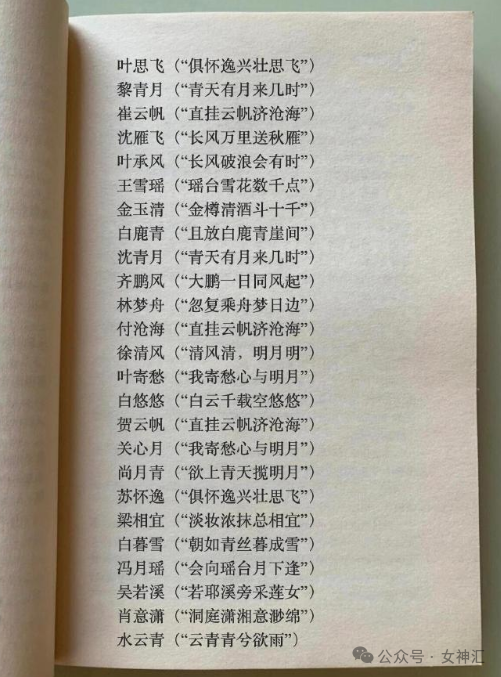 叶思飞（“俱怀逸兴壮思飞”）
黎青月（“青天有月来几时”）
崔云帆（“直挂云帆济沧海”）
沈雁飞（“长风万里送秋雁”）
叶承风（“长风破浪会有时”）
王雪瑶（“瑶台雪花数千点”）
金玉清（“金樽清酒斗十千”）
白鹿青（“且放白鹿青崖间”）
沈青月（“青天有月来几时”）
齐鹏风（“大鹏一日同风起”）
林梦舟（“忽复乘舟梦日边”）
付沧海（“直挂云帆济沧海”）
徐清风（“清风清，明月明”）
叶寄愁（“我寄愁心与明月”）
白悠悠（“白云千载空悠悠”）
贺云帆（“直挂云帆济沧海”）
关心月（“我寄愁心与明月”）
尚月青（“欲上青天揽明月”）
苏怀逸（“俱怀逸兴壮思飞”）
梁相宜（“淡妆浓抹总相宜”）
白暮雪（“朝如青丝暮成雪”）
冯月瑶（“会向瑶台月下逢”）
吴若溪（“若耶溪旁采莲女”）
肖意潇（“洞庭潇湘意渺绵”）
水云青（“云青青兮欲雨”）
公众号·女神汇